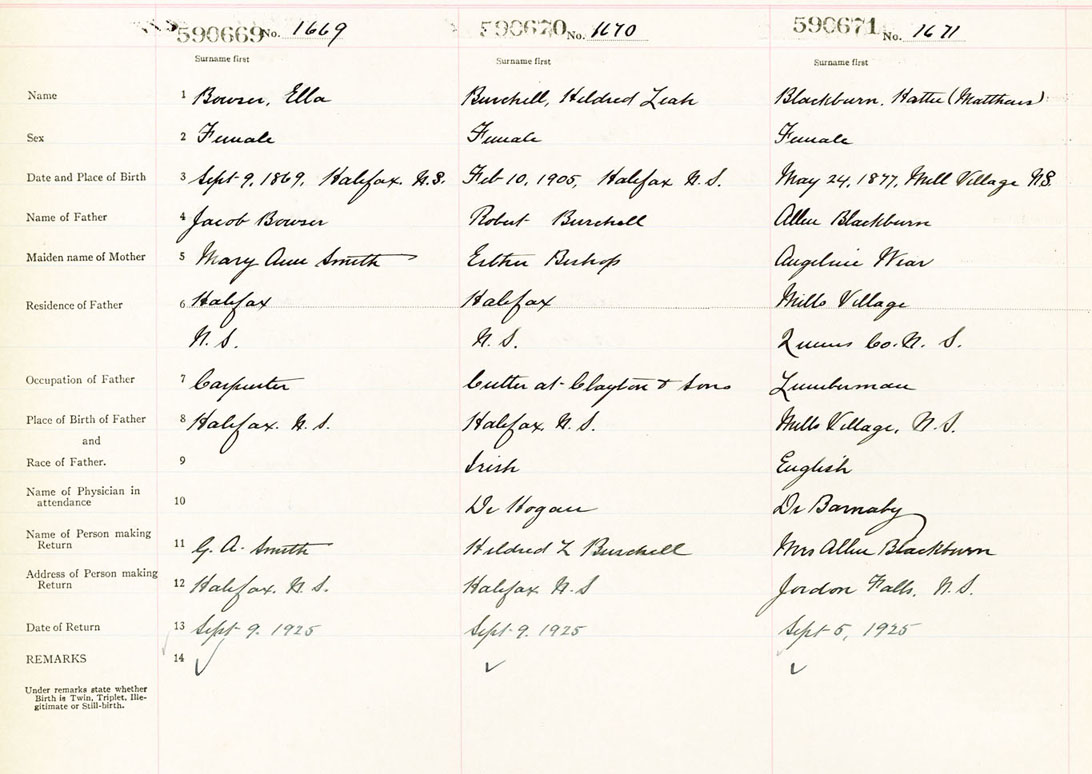 590669 No. 1669 590670 No. 1670 590671 No. 1671
Surname first Surname first Surname first
Name 1 Bowser, Ella Burchell, Hildred Leah Blackburn, Hattie (Matthews)
Sex 2 Female Female Female
Date and Place of Birth 3 Sept 9, 1869, Halifax. N.S. Feb 10, 1905, Halifax N.S. May 24, 1877, Mill Village N.S.
Name of Father 4 Jacob Bowser Robert Burchell Allen Blackburn
Maiden name of Mother 5 Mary Ann Smith Esther Bishop Angeline Wear
Residence of Father 6 Halifax Halifax Mills Village
N.S. N.S. Queens Co. N.S.
Occupation of Father 7 Carpenter Cutter at Clayton & Sons Lumberman
Place of Birth of Father 8 Halifax. N.S. Halifax. N.S. Mills Village, N.S.
and
Race of Father. 9 Irish English
Name of Physician in attendance 10 Dr Hogan Dr Barnaby
Name of Person making Return 11 G. A. Smith Hildred L Burchell Mrs Allen Blackburn
Address of Person making Return 12 Halifax. N.S. Halifax. N.S Jordon Falls. N.S.
Date of Return 13 Sept 9. 1925 Sept 9. 1925 Sept 5, 1925
REMARKS 14
Under remarks state whether
Birth is Twin, Triplet, Ille-
gitimate or Still-birth.